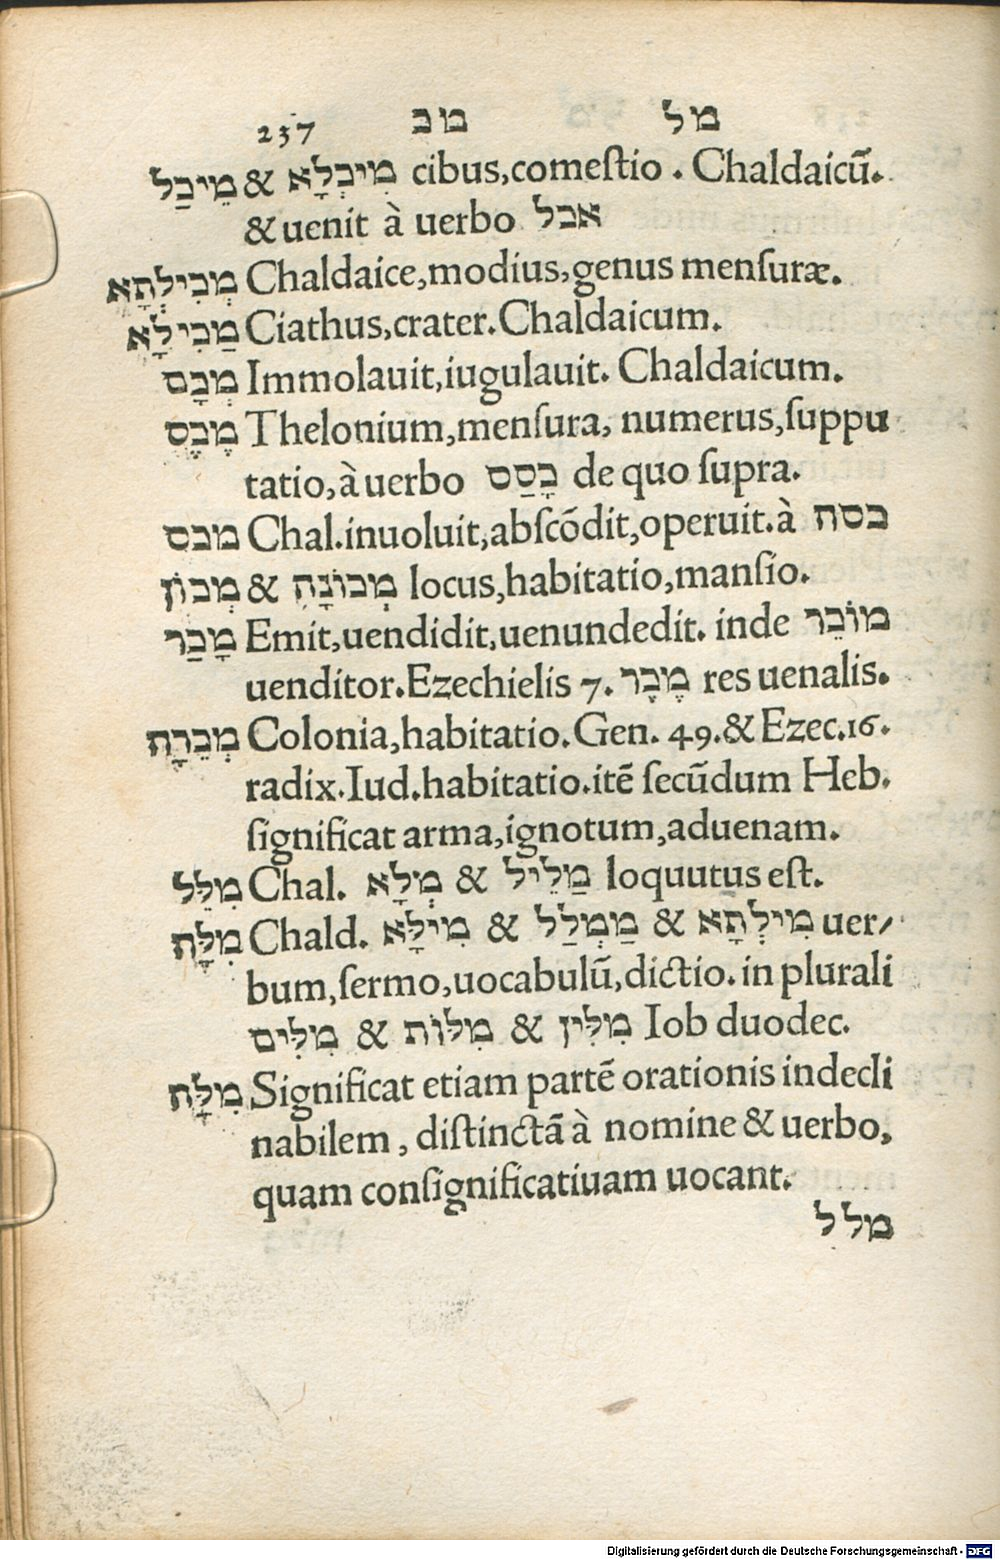 237 מב מל
מֵיכַל & מִיכְלָא cibus,comeſtio . Chaldaicū.
& uenit à uerbo אכל
מְכִילְתָּא Chaldaice,modius,genus menſuræ.
מַכִילָּא Ciathus,crater.Chaldaicum.
מְכָס Immolauit,iugulauit. Chaldaicum.
מֶכֶס Thelonium,menſura, numerus,ſuppu
tatio,à uerbo כָּסַס de quo ſupra.
מכס Chal.inuoluit,abſcōdit,operuit.à כסה
מְכוֹן & מְכוֹנָה locus,habitatio,manſio.
מָכַר Emit,uendidit,uenundedit. inde מוֹכֵר
uenditor.Ezechielis 7. מֶכֶר res uenalis.
מְכֵרָה Colonia,habitatio.Gen. 49.& Ezec.16.
radix.Iud.habitatio.itē ſecūdum Heb.
ſignificat arma,ignotum,aduenam.
מִלֵּל Chal. מְלָא & מַלֵיל loquutus eſt.
מִלָּה Chald. מִילָּא & מַמְלַל & מִילְתָא uer⸗
bum,ſermo,uocabulū,dictio.in plurali
מִלִּים & מִלּוֹת & מִלִּין Iob duodec.
מִלָּה Significat etiam partē orationis indecli
nabilem , diſtinctā à nomine & uerbo,
quam conſignificatiuam uocant.
מלל
Digitalisierung gefördert durch die Deutsche Forschungsgemeinschaft - DFG